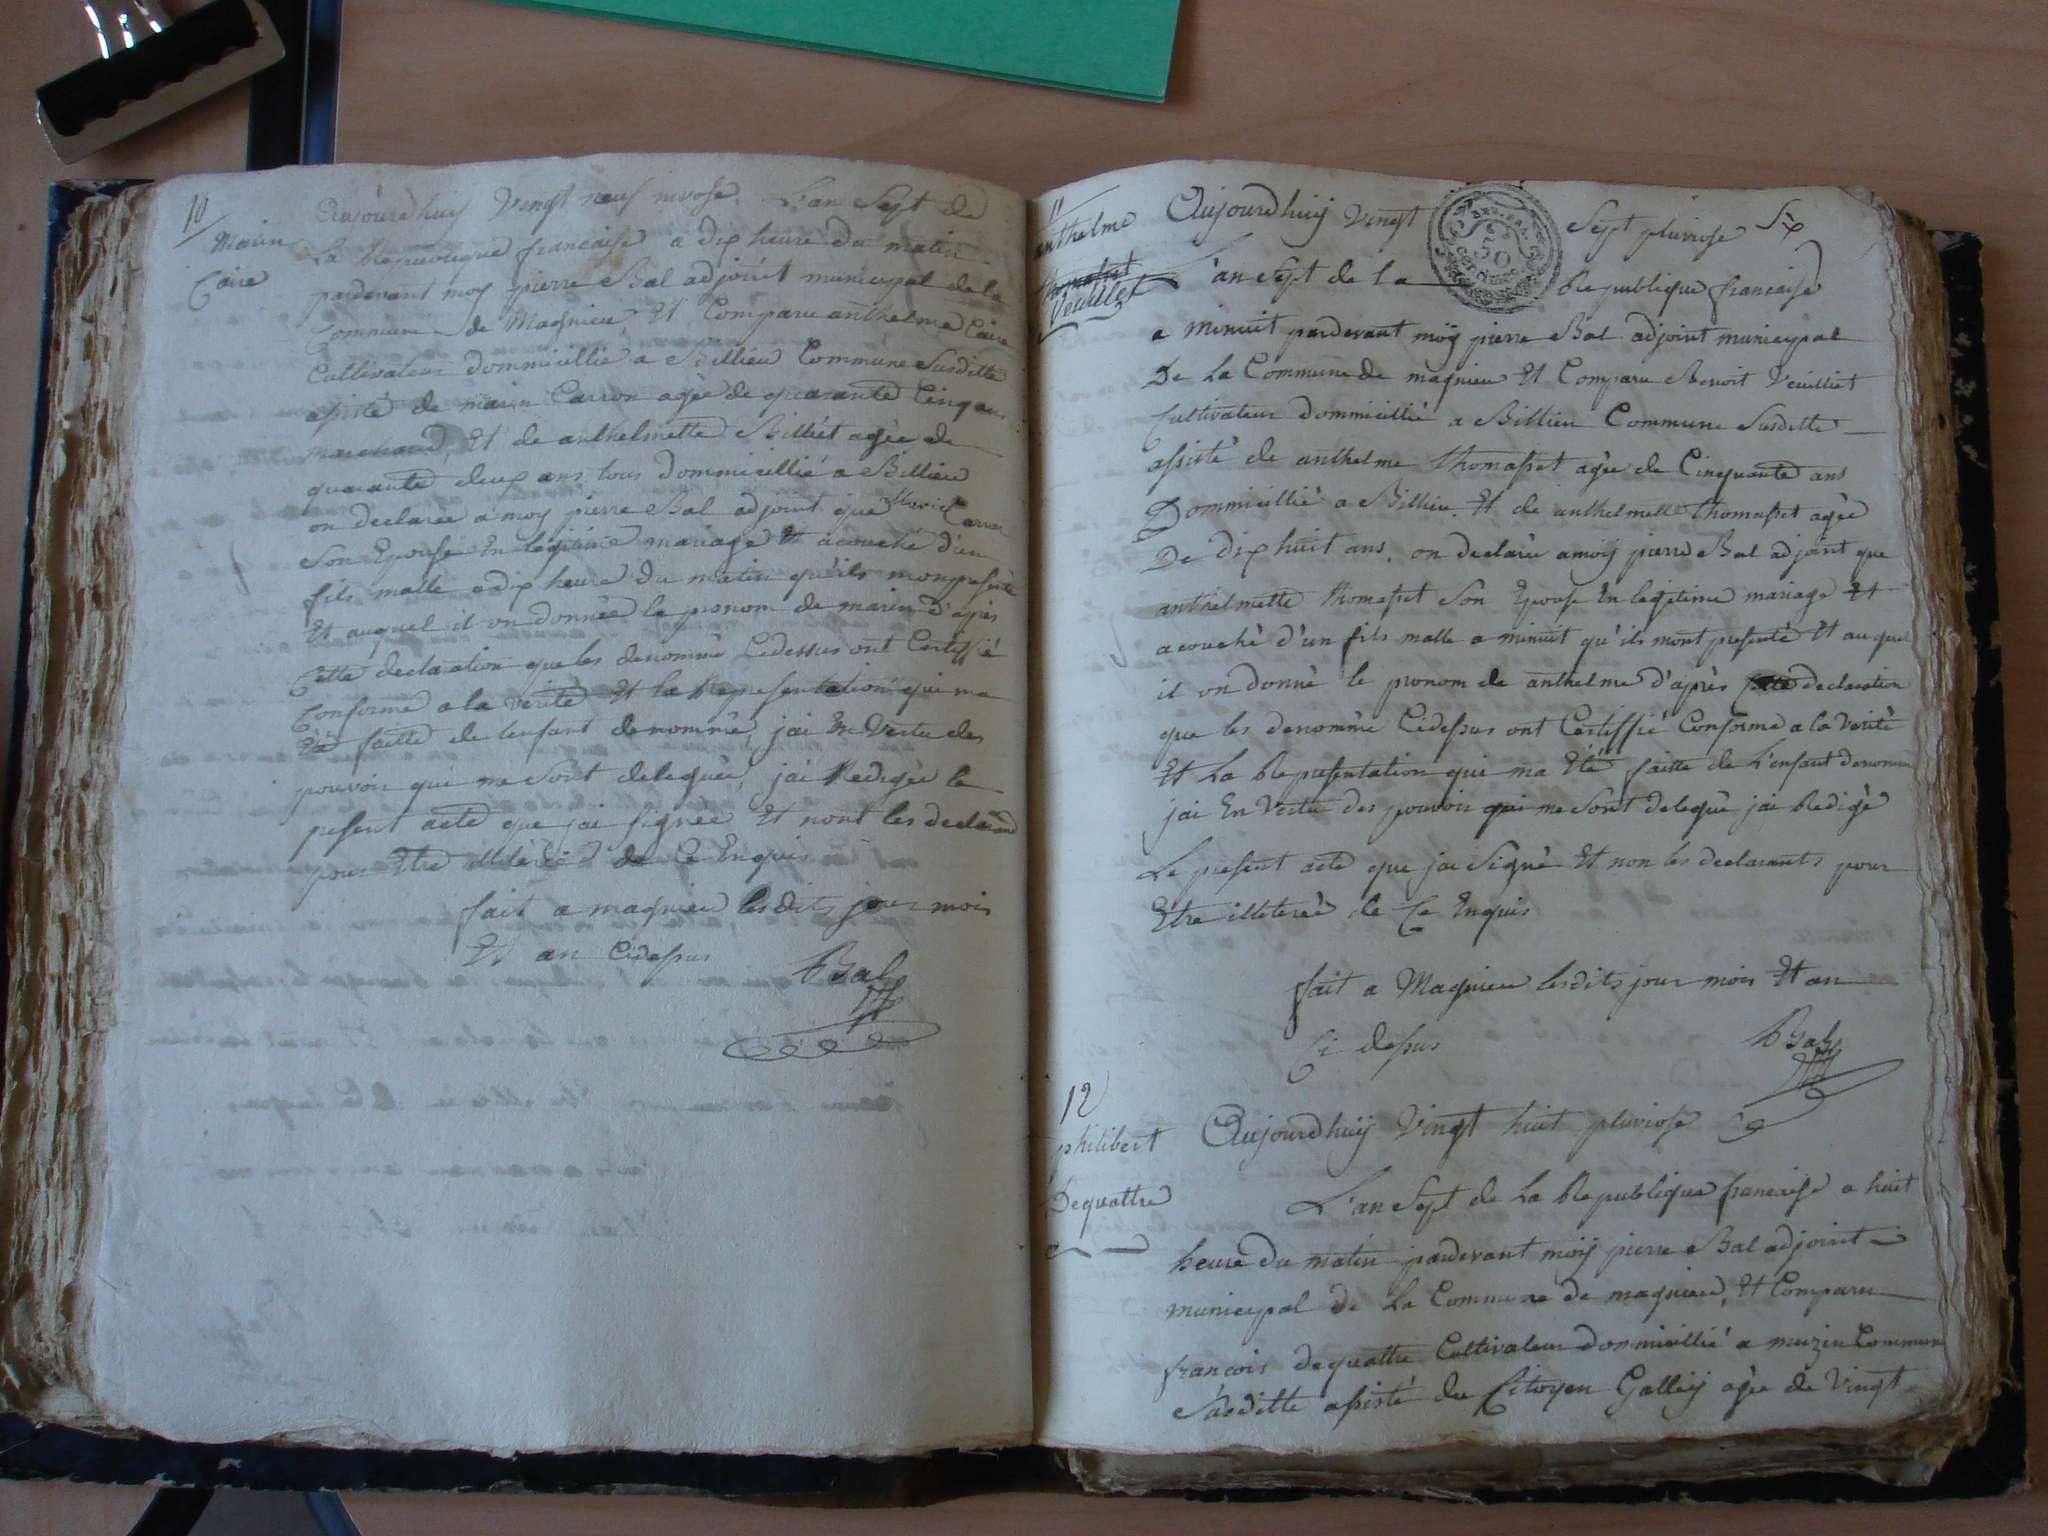 10
Marin
Caire
Aujourdhuij Vingt neuf nivose L'an Sept de
La Republique francaise a dix heure du matin
pardevant moy pierre Bal adjoint municipal de la
Commune de Magnieu, Et Comparu anthelme Caire
Cultivateur dommicillié a Billieu Commune Susditte
assisté de marin Carron agée de quarante Cinq ans
marchand, Et de anthelmette Billiet agée de
quarante deux ans tous dommicillié a Billieu
on declarée a moy pierre Bal adjoint que Marie Carron
Son Epouse En legitime mariage Et acouché d'un
fils malle a dix heure du matin qu'ils mon presenté
Et auquel il on donnée le pronom de marin d'apres
Cette declaration que les denommé Cidessus ont Certiffié
Conforme a la verité Et la Representation qui ma
Eté faitte de lenfant denommé, jai En Vertu des
pouvoir qui me Sont deleguée, jai Redigée le
present acte que jai signée Et nont les declarand
pour Etre illiteré de Ce Enquis
fait a magnieu lesdits jour mois
Et an Cidessus
Bal
11
anthelme
thomasset
Veuillet
Aujourdhuij Vingt Sept pluviose Six
L'an Sept de la Republique francaise
a Minuit pardevant moij pierre Bal adjoint municypal
De La Commune de magnieu Et Comparu Benoit Veuilliet
Cultivateur dommicillié a Billieu Commune Susditte
assisté de anthelme thomasset agée de Cinquante ans
Dommicillié a Billieu. Et de anthelmette thomasset agée
De dix huit ans. on declarée amoij pierre Bal adjoint que
anthelmette thomasset Son Epouse En legitime mariage Et
acouché d'un fils malle a minuit qu'ils mont presenté Et au quel
il on donné le pronom de anthelme d'après Cette declaration
que les denommé Cidessus ont Certiffié Conforme a la Verité
Et La Representation qui ma Eté faitte de L'enfant denommé
jai En Vertu des pouvoir qui me Sont delegué jai Redigé
Le present acte que jai Signé Et non les declarants pour
Etre illiterée de Ce Enquis
fait a Magnieu lesdits jour mois Et an
Ci dessus
Bal
12
philibert
Dequattre
Aujourdhuij Vingt huit pluviose
L'an Sept de La Republique francaise a huit
heure du matin pardevant moij pierre Bal adjoint
municypal de La Commune de magnieu, Et Comparu
francois dequattre Cultivateur dommicillié a muzin Commune
Susditte assisté du Citoyen Galley agée de Vingt